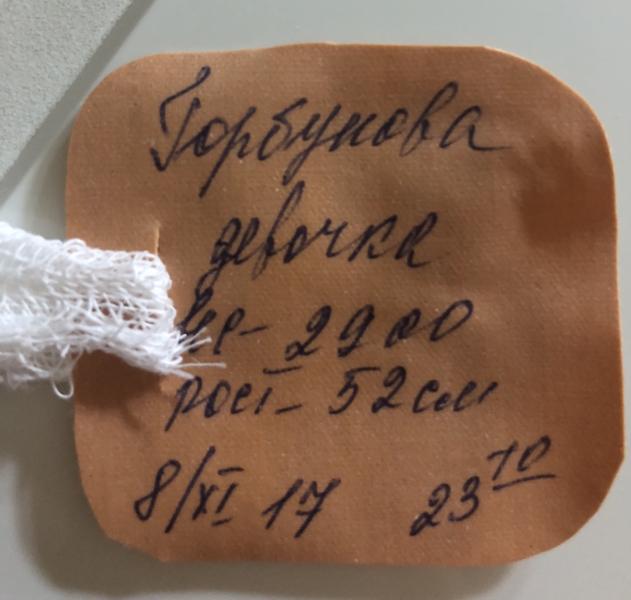 Горбунова
девочка
вес- 2900
рост- 52см
8/XI 17 23 10